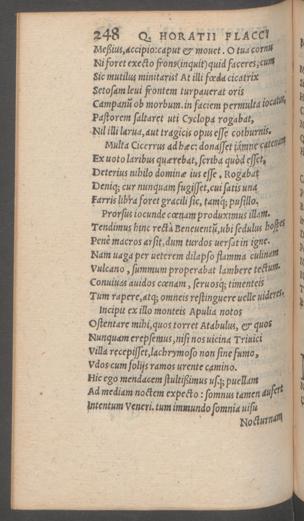 248 Q. HORATII FLACCI
Meßius, accipio: caput & mouet. O tua cornu
Ni foret execto frons (inquit) quid faceres, cum
Sic mutilus minitaris? At illi fœda cicatrix
Setosam leui frontem turpauerat oris
Campanũ ob morbum. in faciem permulta iocatus,
Pastorem saltaret uti Cyclopa rogabat,
Nil illi larua, aut tragicis opus esse cothurnis.
Multa Cicerrus ad hæc: donasset iãmne catenam
Ex uoto laribus quærebat, scriba quòd esset,
Deterius nihilo dominæ ius esse. Rogabat
Deniq; cur nunquam fugisset, cui satis una
Farris libra foret gracili sic, tamq́; pusillo.
Prorsus iocunde cœnam produximus illam.
Tendimus hinc rectà Beneuentũ, ubi sedulus hospes
Penè macros arsit, dum turdos uersat in igne.
Nam uaga per ueterem dilapso flamma culinam
Vulcano, summum properabat lambere tectum.
Conuiuas auidos cœnam, seruosq; timenteis
Tum rapere, atq; omneis restinguere uelle uideres.
Incipit ex illo monteis Apulia notos
Ostentare mihi, quos torret Atabulus, & quos
Nunquam erepsemus, nisi nos uicina Triuici
Villa recepisset, lachrymoso non sine fumo,
Vdos cum folijs ramos urente camino.
Hic ego mendacem stultißimus usq; puellam
Ad mediam noctem expecto: somnus tamen aufert
Intentum Veneri. tum immundo somnia uisu
Nocturnam